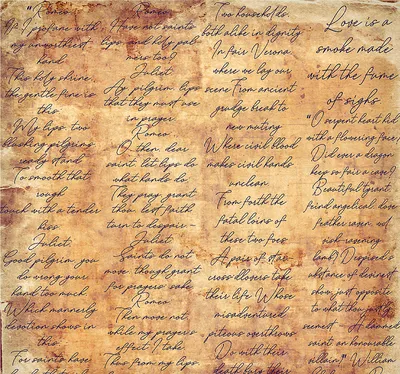 "Romeo
If I profane with
my unworthiest
hand
This holy shrine,
the gentle fine is
this:
My lips, two
blushing pilgrims,
ready stand
To smooth that
rough
touch with a tender
kiss.
Juliet
Good pilgrim, you
do wrong your
hand too much,
Which mannerly
devotion shows in
this
For saints have
Romeo
Have not saints
lips, and holy pal-
mers too?
Juliet
Ay, pilgrim, lips
that they must use
in prayer
Romeo
O, then, dear
saint, let lips do
what hands do;
They pray, grant
thou, lest faith
turn to despair-
Juliet
Saints do not
move, though grant
for prayers' sake
Romeo
Then move not
while my prayer's
effect I take
Thus from my lips,
Two households,
both alike in dignity
In fair Verona,
where we lay our
scene From ancient
grudge break to
new mutiny
Where civil blood
makes civil hands
unclean
From forth the
fatal loins of
these two foes
A pair of star-
cross dlovers take
their life Whose
misadventured
piteous overthrows
Do with their
death bury their
Love is a
smoke made
with the fume
of sighs
"O serpent heart hid
with a flowering face,
Did ever a dragon
keep so fair a cave?
Beautiful tyrant,
friend angelical, dove
feather raven,
Despised
substance of divinest
show, just opposite
to what thou justly
seemest - A damned
saint an honourable
villain!" William